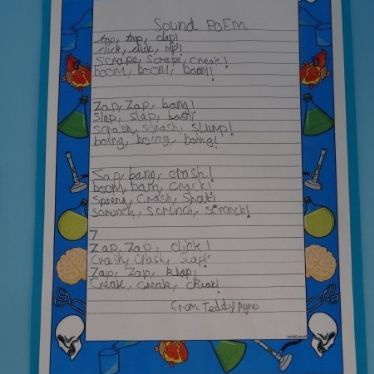 Sound PoEm
zap, zap, clap!
click, click, zip!
Scrape, Scrape, creak!
boom, boom, boom!
Zap, Zap, bam!
Slap, slap, bash!
squash, squash, Slump!
boing, boing, boing!
Zap, bang, crash!
boom, bam, crack!
Crash,
scrunch, scrunch, scrunch!
7
Zap, Zap, click!
Crash, Crash,
Zap, Zap,
Creak, creak,
from Teddy